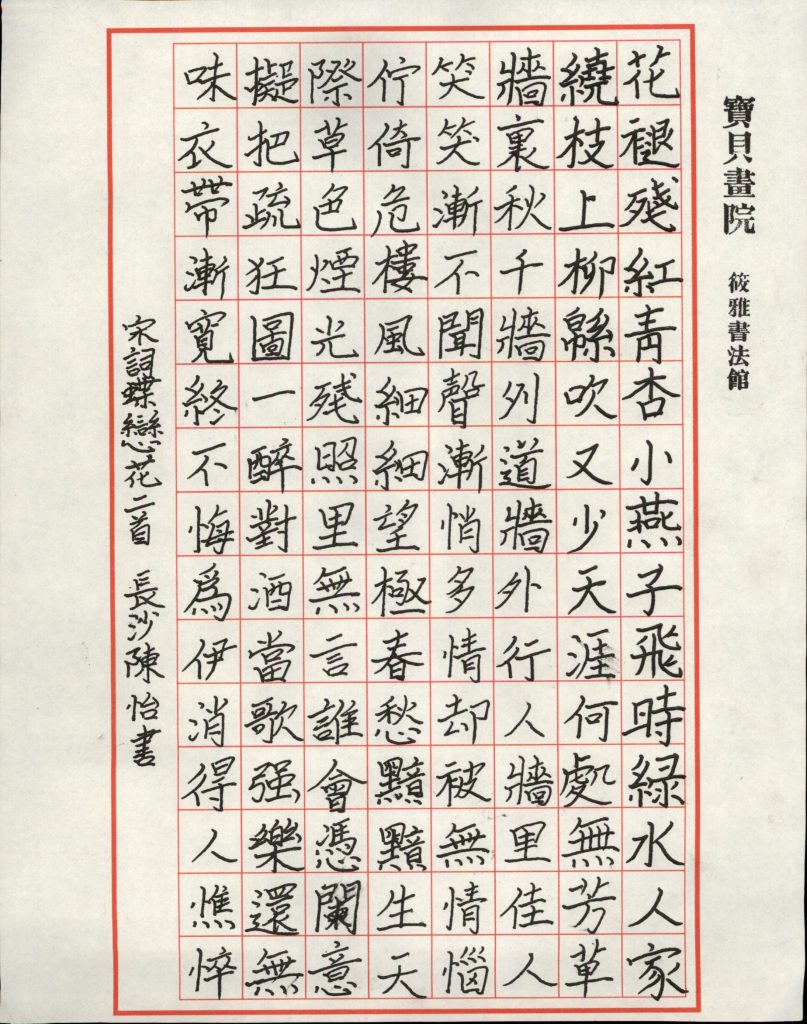 寶貝畫院 筱雅書法館
花褪殘紅青杏小燕子飛時緑水人家
繞枝上柳緜吹又少天涯何處無芳草
牆裏秋千牆列道牆外行人牆里佳人
笑笑漸不聞聲漸悄多情却被無情惱
佇倚危樓風細細望極春愁黯黯生天
際草色煙光残照里無言誰會憑闌意
擬把疏狂圖一醉對酒當歌强樂還無
味衣帶漸寬終不悔爲伊消得人憔悴
宋詞蝶戀花二首 長沙陳怡書